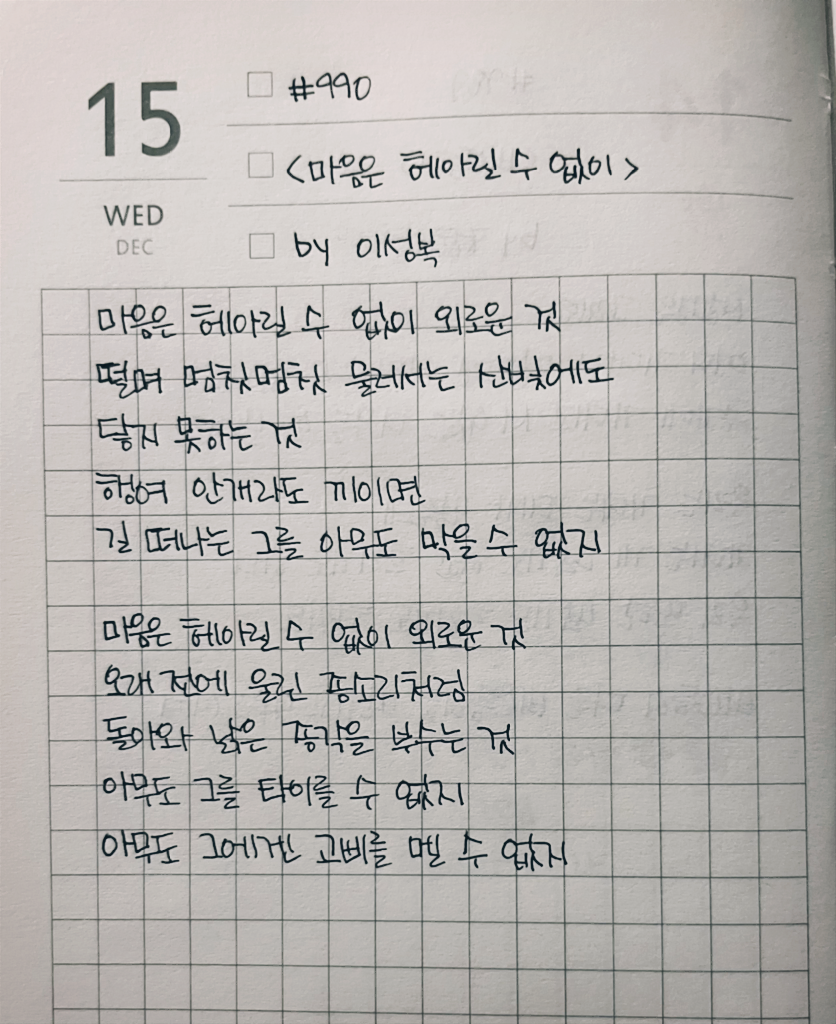 15
WED
DEC
#990
<마음은 헤아릴 수 없이>
by 이성복
마음은 헤아릴 수 없이 외로운 것
떨며 멈칫멈칫 물러서는 산빛에도
닿지 못하는 것
행여 안개라도 끼이면
길 떠나는 그를 아무도 막을 수 없지
마음은 헤아릴 수 없이 외로운 것
오래 전에 울린 종소리처럼
돌아와 낡은 종각을 부수는 것
아무도 그를 타이를 수 없지
아무도 그에겐 고삐를 멜 수 없지